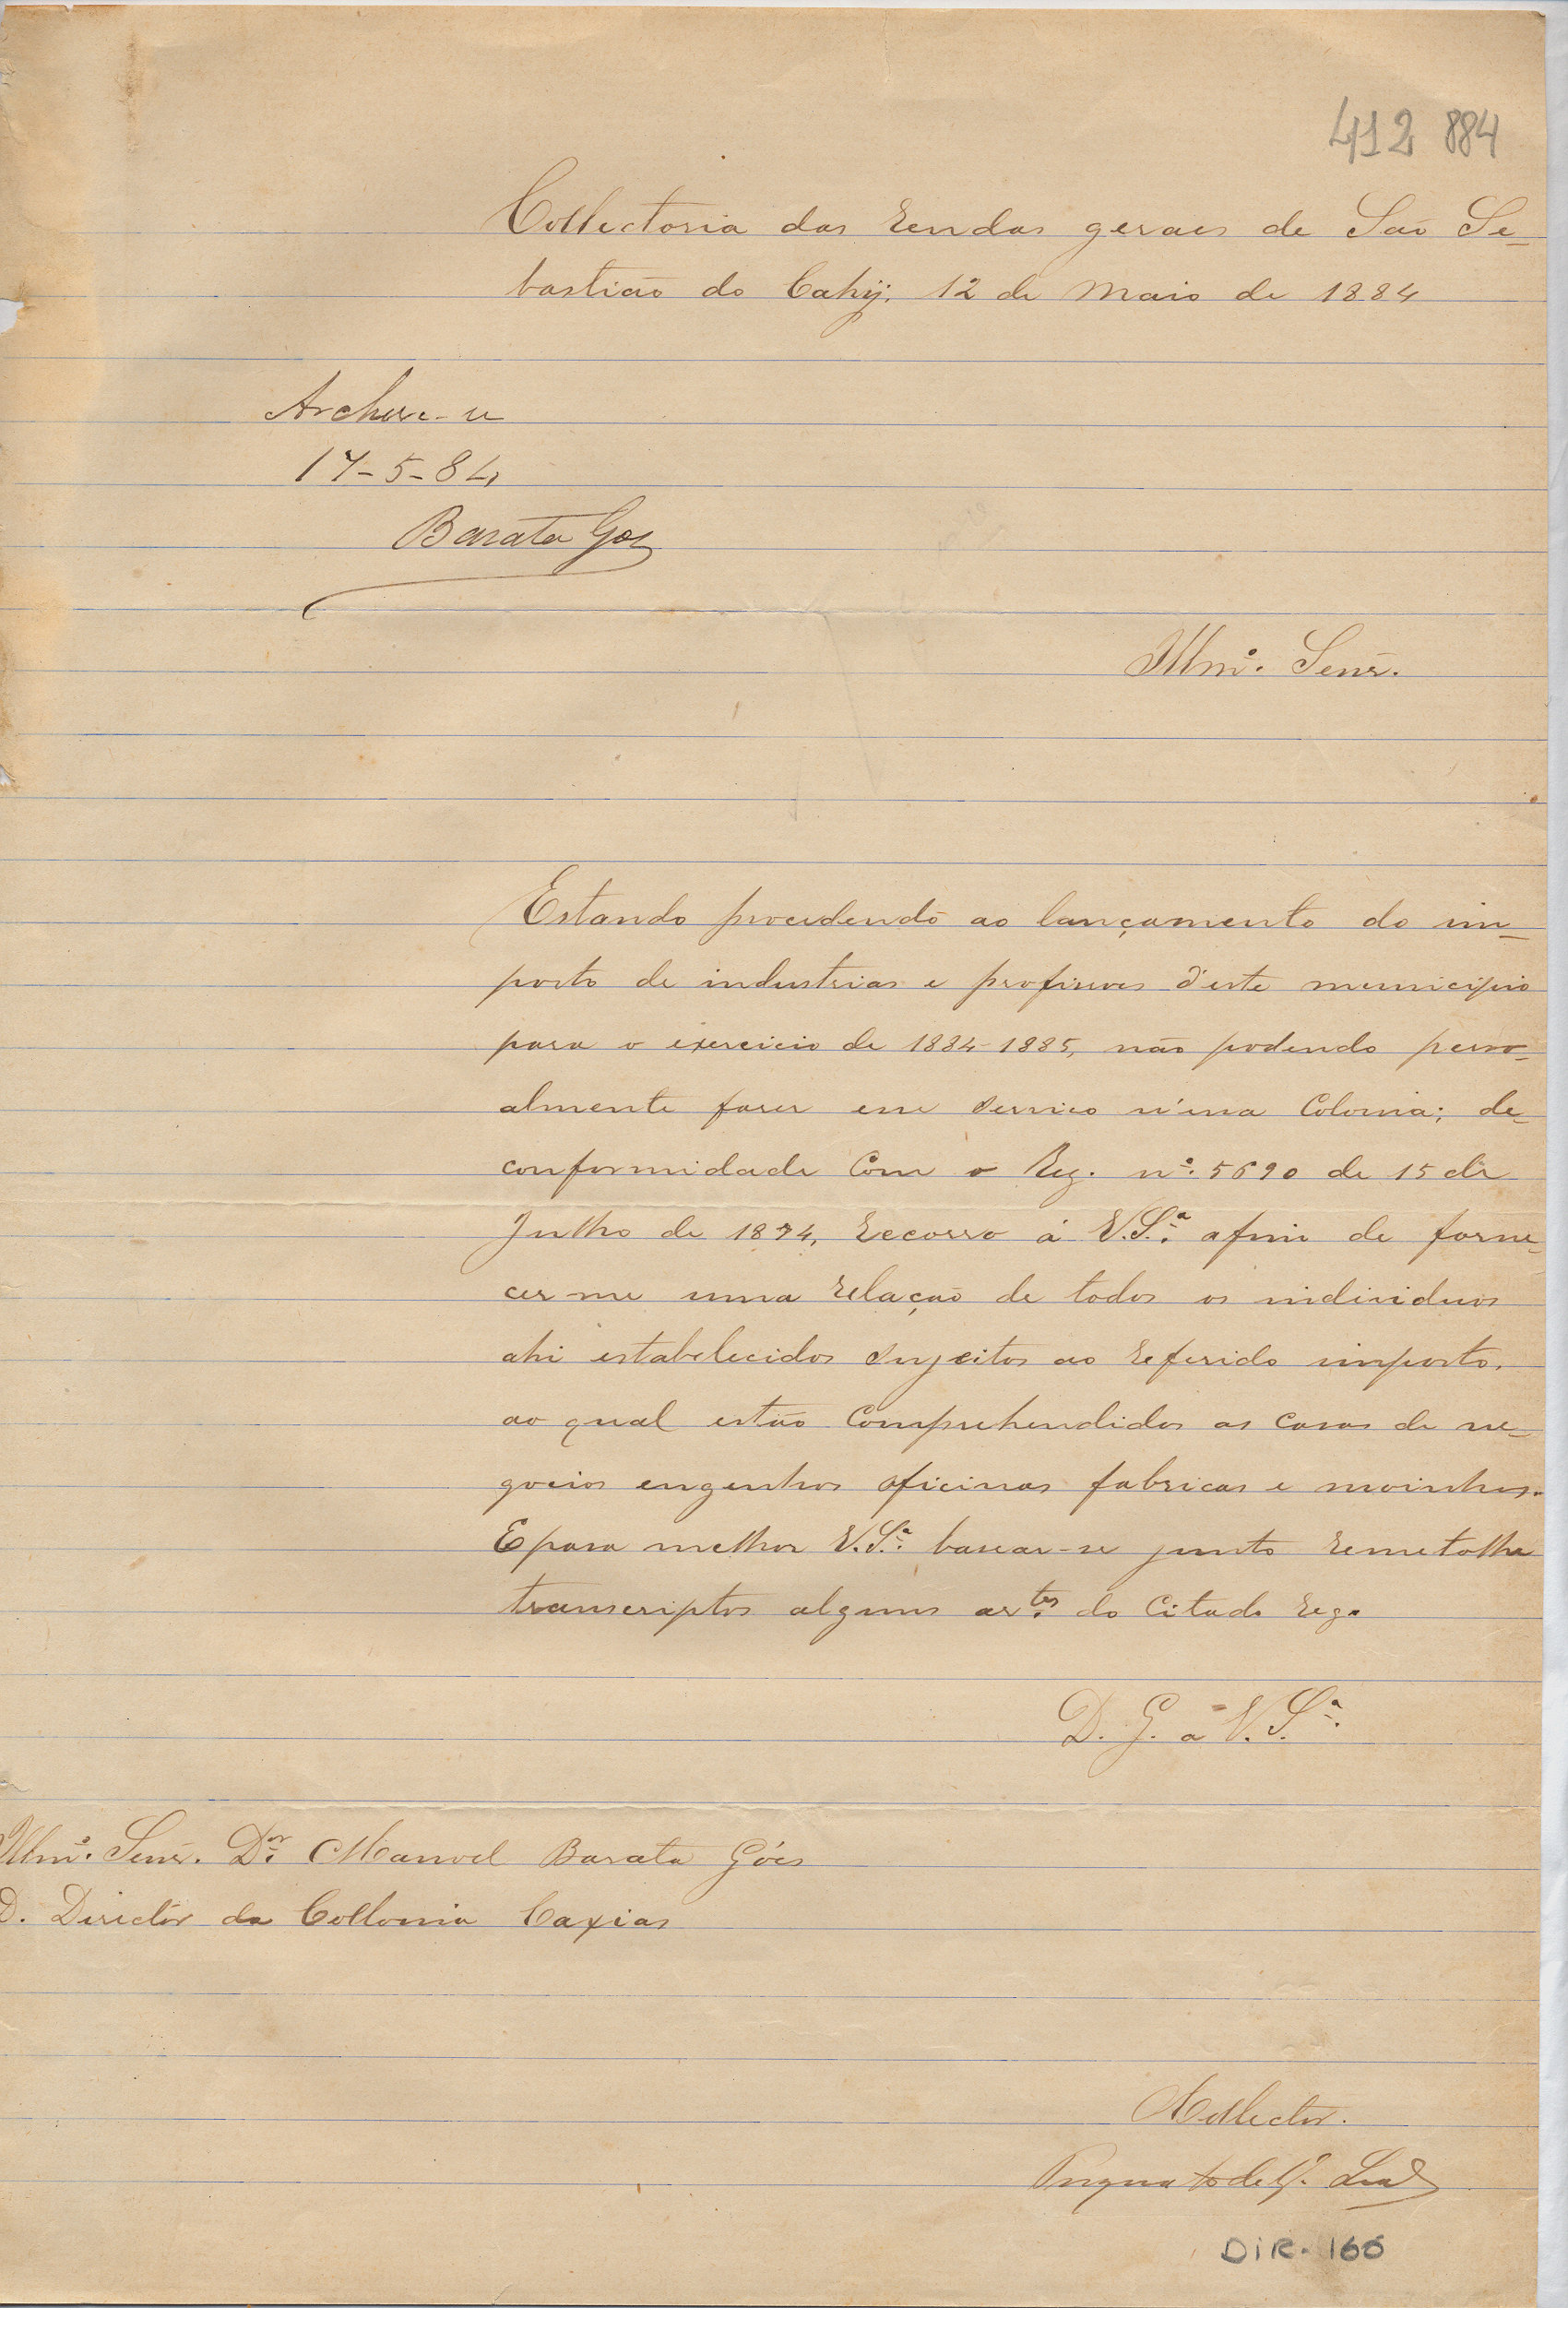 412 884
Collectoria das rendas geraes de São Se-
bastião do Cahÿ, 12 de Maio de 1884
Archive-se
17-5-84
Barata Goes
Illmº. Senr.
Estando procedendo ao lançamento do im-
posto de industrias e profissoes d'este municipio
para o exercicio de 1884-1885, não podendo pesso-
almente faser esse serviço n'essa Colonia; de
conformidade com o Reg. nº. 5690 de 15 de
Julho de 1874, recorro á V.Sª. afim de forne-
cer-me uma relação de todos os individuos
ahi estabelecidos sujeitos ao referido imposto,
ao qual estão comprehendidos as casas de ne-
gocios engenhos oficinas fabricas e moinhos.
E para melhor V.Sª. basear-se junto remetolhe
transcriptos alguns artes. do citado reg.
D. G. a V. Sª.
Illmº. Senr. Dor. Manoel Barata Góes
D. Director da Collonia Caxias
O Collector.
Leal
DIR. 166